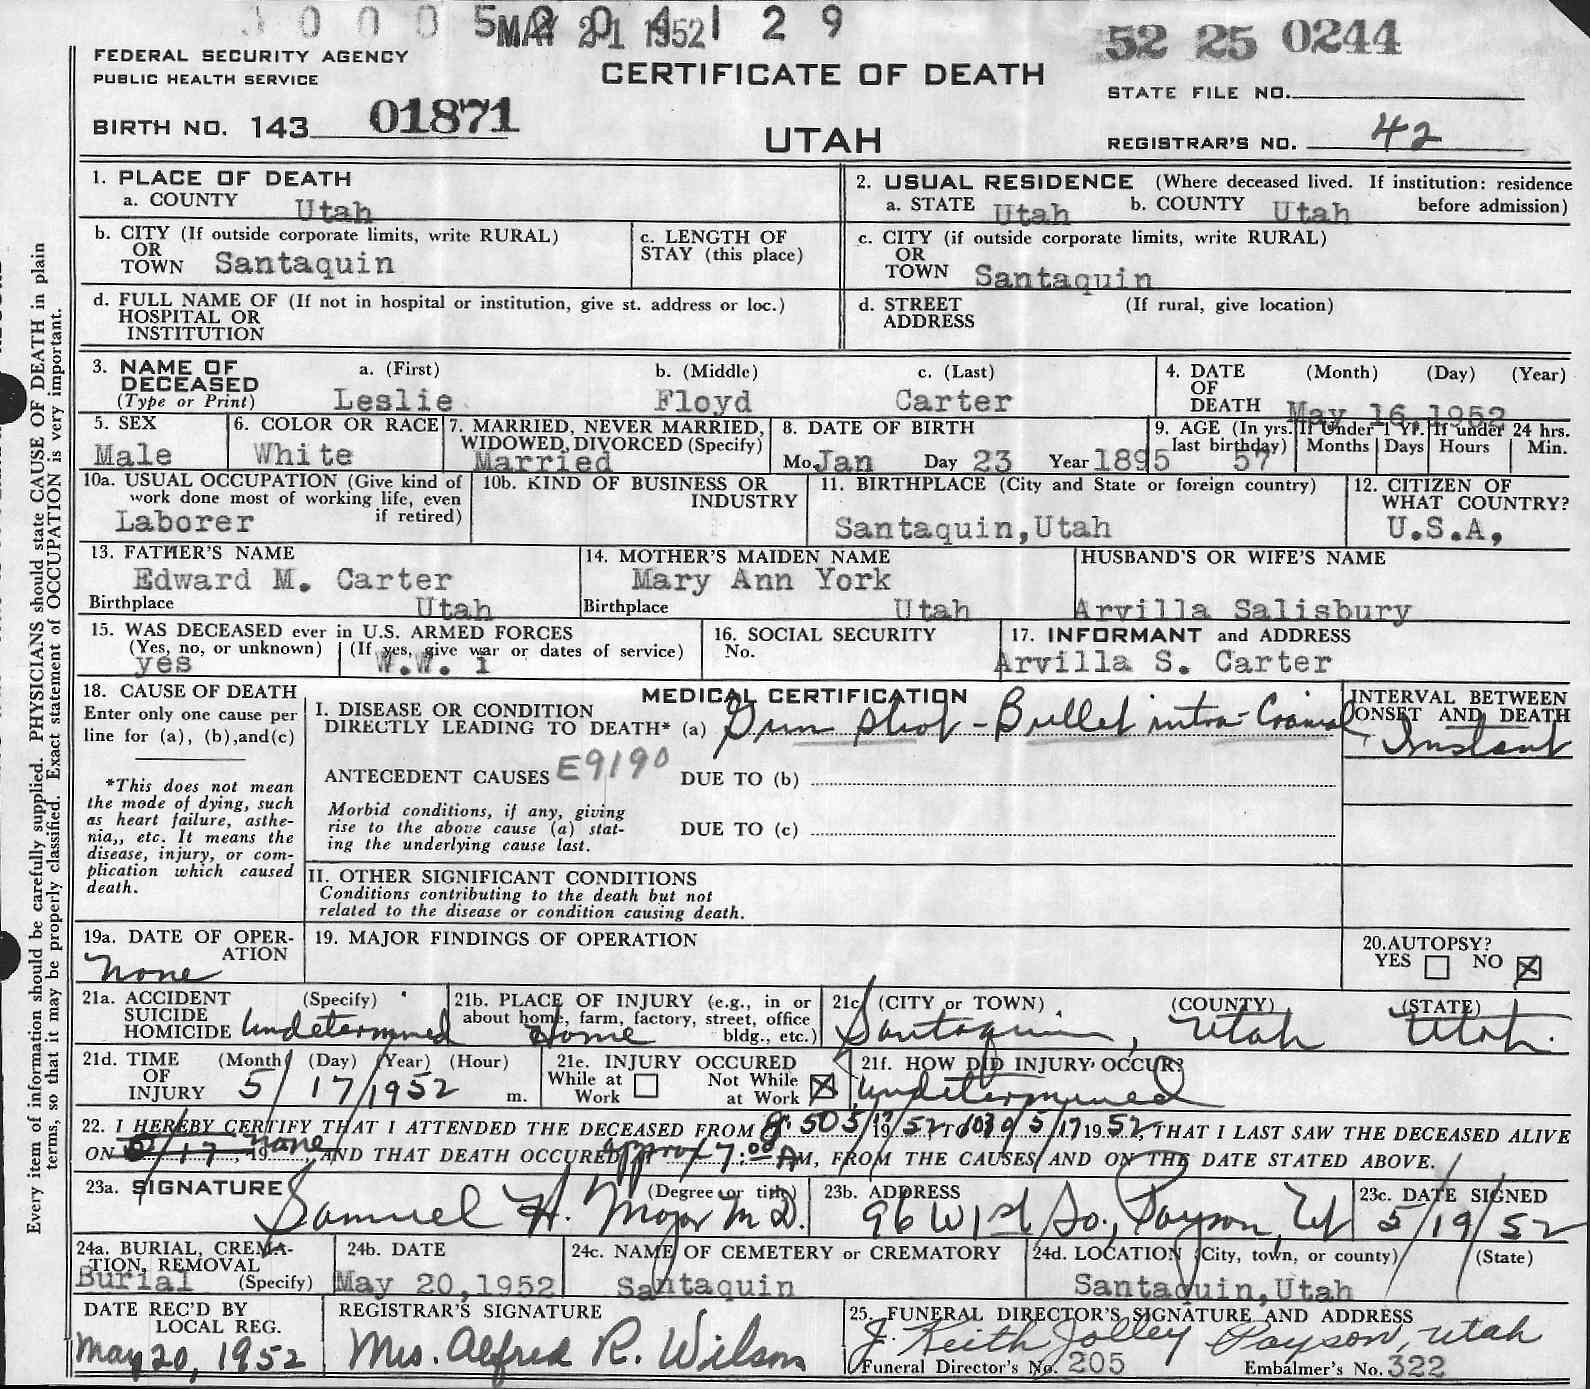 MAY 21 1952
52 25 0244
FEDERAL SECURITY AGENCY
PUBLIC HEALTH SERVICE
CERTIFICATE OF DEATH
STATE FILE NO.
BIRTH NO. 143 01871
UTAH
REGISTRAR'S NO. 42
Every item of information should be carefully supplied. PHYSICIANS should state CAUSE OF DEATH in plain
terms, so that it may be properly classified. Exact statement of OCCUPATION is very important.
1. PLACE OF DEATH
a. COUNTY Utah
2. USUAL RESIDENCE (Where deceased lived. If institution: residence
before admission)
a. STATE Utah b. COUNTY Utah
b. CITY (If outside corporate limits, write RURAL)
OR
TOWN Santaquin
c. LENGTH OF
STAY (this place)
c. CITY (if outside corporate limits, write RURAL)
OR
TOWN Santaquin
d. FULL NAME OF (If not in hospital or institution, give st. address or loc.)
HOSPITAL OR
INSTITUTION
d. STREET (If rural, give location)
ADDRESS
3. NAME OF
DECEASED
(Type or Print)
a. (First) b. (Middle) c. (Last)
Leslie Floyd Carter
4. DATE (Month) (Day) (Year)
OF
DEATH May 16,1952
5. SEX
Male
6. COLOR OR RACE
White
7. MARRIED, NEVER MARRIED,
WIDOWED, DIVORCED (Specify)
Married
8. DATE OF BIRTH
Mo. Jan Day 23 Year 1895
9. AGE (In yrs.
last birthday) 57
If Under 1 Yr.
Months Days
If under 24 hrs.
Hours Min.
10a. USUAL OCCUPATION (Give kind of
work done most of working life, even
if retired)
Laborer
10b. KIND OF BUSINESS OR
INDUSTRY
11. BIRTHPLACE (City and State or foreign country)
Santaquin,Utah
12. CITIZEN OF
WHAT COUNTRY?
U.S.A,
13. FATHER'S NAME
Edward M. Carter
Birthplace Utah
14. MOTHER'S MAIDEN NAME
Mary Ann York
Birthplace Utah
HUSBAND'S OR WIFE'S NAME
Arvilla Salisbury
15. WAS DECEASED ever in U.S. ARMED FORCES
(Yes, no, or unknown) (If yes, give war or dates of service)
yes W.W. 1
16. SOCIAL SECURITY
No.
17. INFORMANT and ADDRESS
Arvilla S. Carter
18. CAUSE OF DEATH
Enter only one cause per
line for (a), (b),and(c)
*This does not mean
the mode of dying, such
as heart failure, asthe-
nia,, etc. It means the
disease, injury, or com-
plication which caused
death.
MEDICAL CERTIFICATION
I. DISEASE OR CONDITION
DIRECTLY LEADING TO DEATH* (a) Gun shot - Bullet intra-Cranial
ANTECEDENT CAUSES E9190 DUE TO (b)
Morbid conditions, if any, giving
rise to the above cause (a) stat-
ing the underlying cause last.
DUE TO (c)
II. OTHER SIGNIFICANT CONDITIONS
Conditions contributing to the death but not
related to the disease or condition causing death.
INTERVAL BETWEEN
ONSET AND DEATH
Instant
19a. DATE OF OPER-
ATION
None
19. MAJOR FINDINGS OF OPERATION
20.AUTOPSY?
YES NO
21a. ACCIDENT (Specify)
SUICIDE
HOMICIDE Undetermined
21b. PLACE OF INJURY (e.g., in or
about home, farm, factory, street, office
bldg., etc.)
Home
21c (CITY or TOWN) (COUNTY) (STATE)
Santaquin, Utah Utah.
21d. TIME (Month) (Day) (Year) (Hour)
OF
INJURY 5/17/1952 m.
21e. INJURY OCCURED
While at
Work
Not While
at Work
21f. HOW DID INJURY OCCUR?
Undetermined
22. I HEREBY CERTIFY THAT I ATTENDED THE DECEASED FROM 8:50 5/17/1952, TO 1039 5/17 1952, THAT I LAST SAW THE DECEASED ALIVE
ON 5/17, 19 none AND THAT DEATH OCCURED approx 7:00 AM, FROM THE CAUSES AND ON THE DATE STATED ABOVE.
23a. SIGNATURE (Degree or title)
Samuel H. Major M.D.
23b. ADDRESS
96 W 1st So., Payson, Ut
23c. DATE SIGNED
5/19/52
24a. BURIAL, CREMA-
TION, REMOVAL
Burial (Specify)
24b. DATE
May 20,1952
24c. NAME OF CEMETERY or CREMATORY
Santaquin
24d. LOCATION (City, town, or county) (State)
Santaquin,Utah
DATE REC'D BY
LOCAL REG.
May 20, 1952
REGISTRAR'S SIGNATURE
Mrs. Alfred R. Wilson
25. FUNERAL DIRECTOR'S SIGNATURE AND ADDRESS
J. Keith Jolley Payson, Utah
Funeral Director's No. 205 Embalmer's No. 322